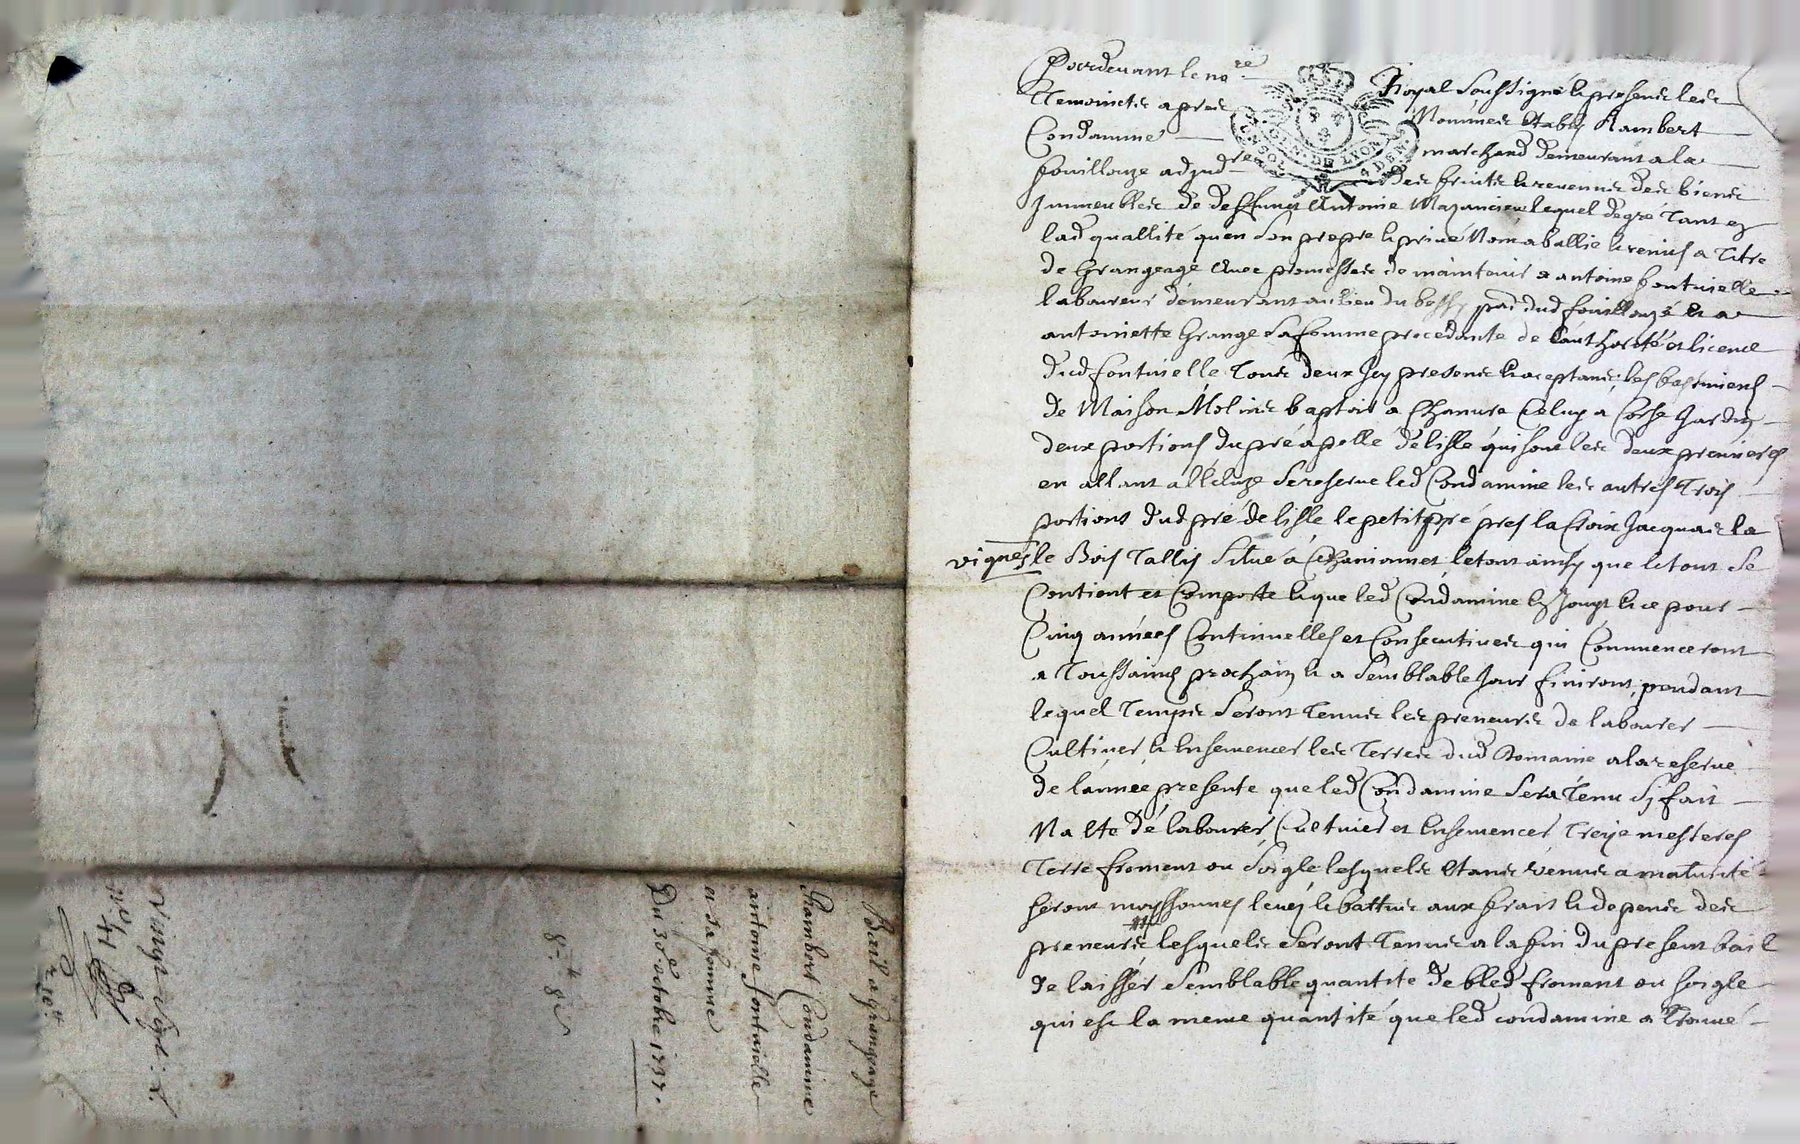 Pardevant le no.re Royal soussigné & presents les
Temoints apres Nommés Estably Rambert
Condamine marchand demeurant a la
fouillouze adjud.re des fruits & revenus des biens
Immeubles de deffunct Antoine lequel degré tant en
lad quallité quen son propre & privé Nom a ballié & remis a Titre
de Grangeage avec promesses de maintenir a antoine fontvielle
laboureur demeurant au Lieu du bessy par dud fouillouze & a
antoinette Grange sa femme procedante de Lauthorité et licence
dud fontvielle Tous deux Icy presents & aceptants les bastiments
de Maison Molins baptoir a Chanvre Celuy a Jardin
deux portions du pré apellé delisle qui sont les deux premieres
en allant a se reserve led Condamine les autres Trois
portions dud pré de lisle le petit pré pres la Croix Jacquais la
vignes le Bois Tallis situé a le tout ainsy que le tout se
Contient et Comporte & que led Condamine En Jouyt & ce pour
Cinq années Continuelles et Consecutives qui Commenceront
a Toussaints prochain & a semblable Jour finiront, pendant
lequel Temps seront Tenus les preneurs de labourer
Cultiver & Ensemencer les Terres dud Domaine a la reserve
de lannée presente que led Condamine sera Tenu si fait
Na Eté de labourer Cultiver et Ensemencer Treize mesteres
Terre froment ou soigle lesquels Etants venus a maturité
seront moyssonnes leves & battus aux frais & depens des
preneurs lesquels seront Tenus a la fin du present bail
de laisser semblable quantité de bled froment ou soigle
qui est la meme quantité que led condamine a Trouvé
GEN. DE LYON
Bail a Grangeage
Rambert Condamine
antoine fontvielle
et sa femme
Du 30e octobre 1737.
8.# 8s
Vingt Sept